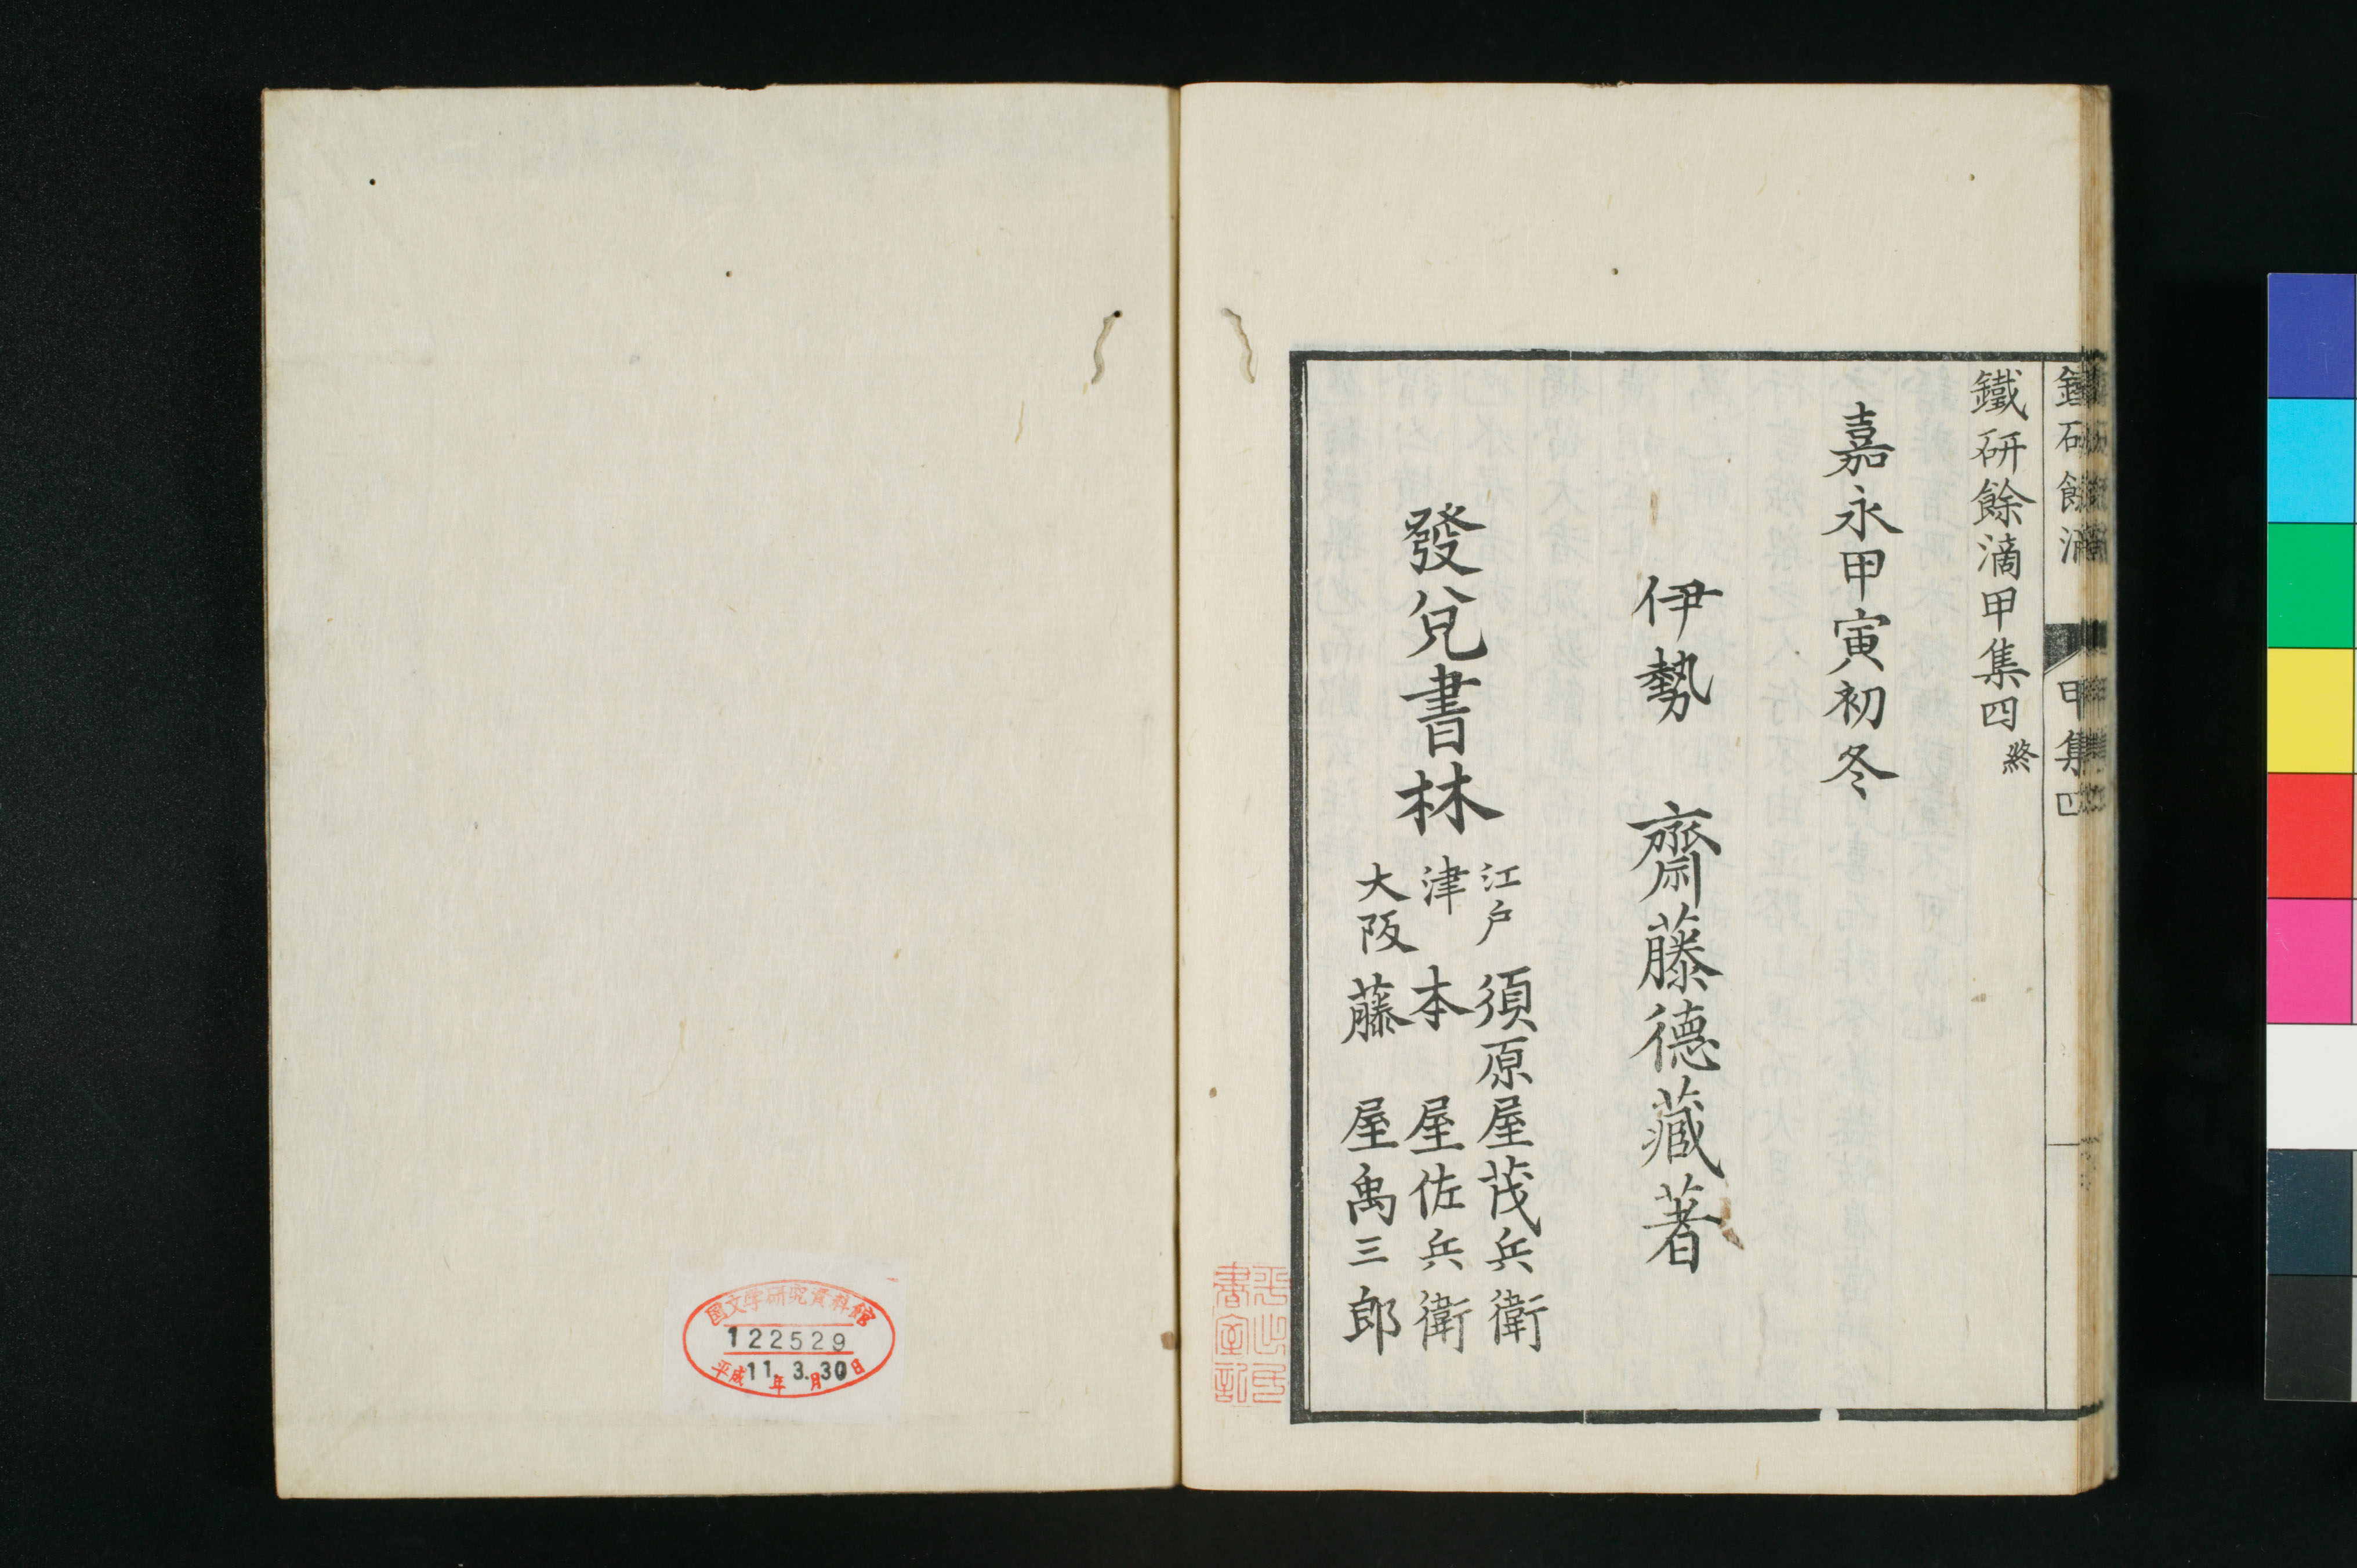 鐵研餘滴 甲集四
鐵研餘滴甲集四終
嘉永甲寅初冬
伊勢 齋藤德藏著
發兌書林
江戸 須原屋茂兵衛
津 本屋佐兵衛
大阪 藤屋禹三郎
国文学研究資料館
122529
平成11年3月30日